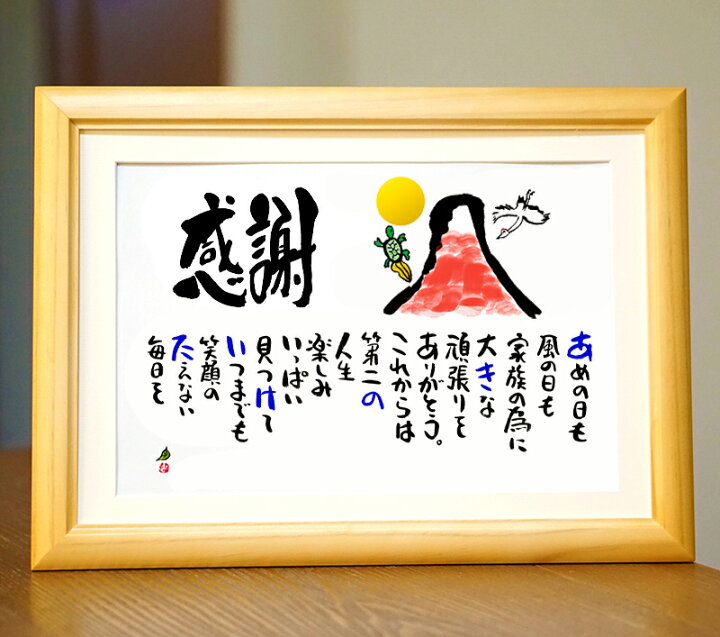 感謝
あめの日も
風の日も
家族の為に
大きな
頑張りを
ありがとう。
これからは
第二の
人生
楽しみ
いっぱい
見つけて
いつまでも
笑顔の
たえない
毎日を